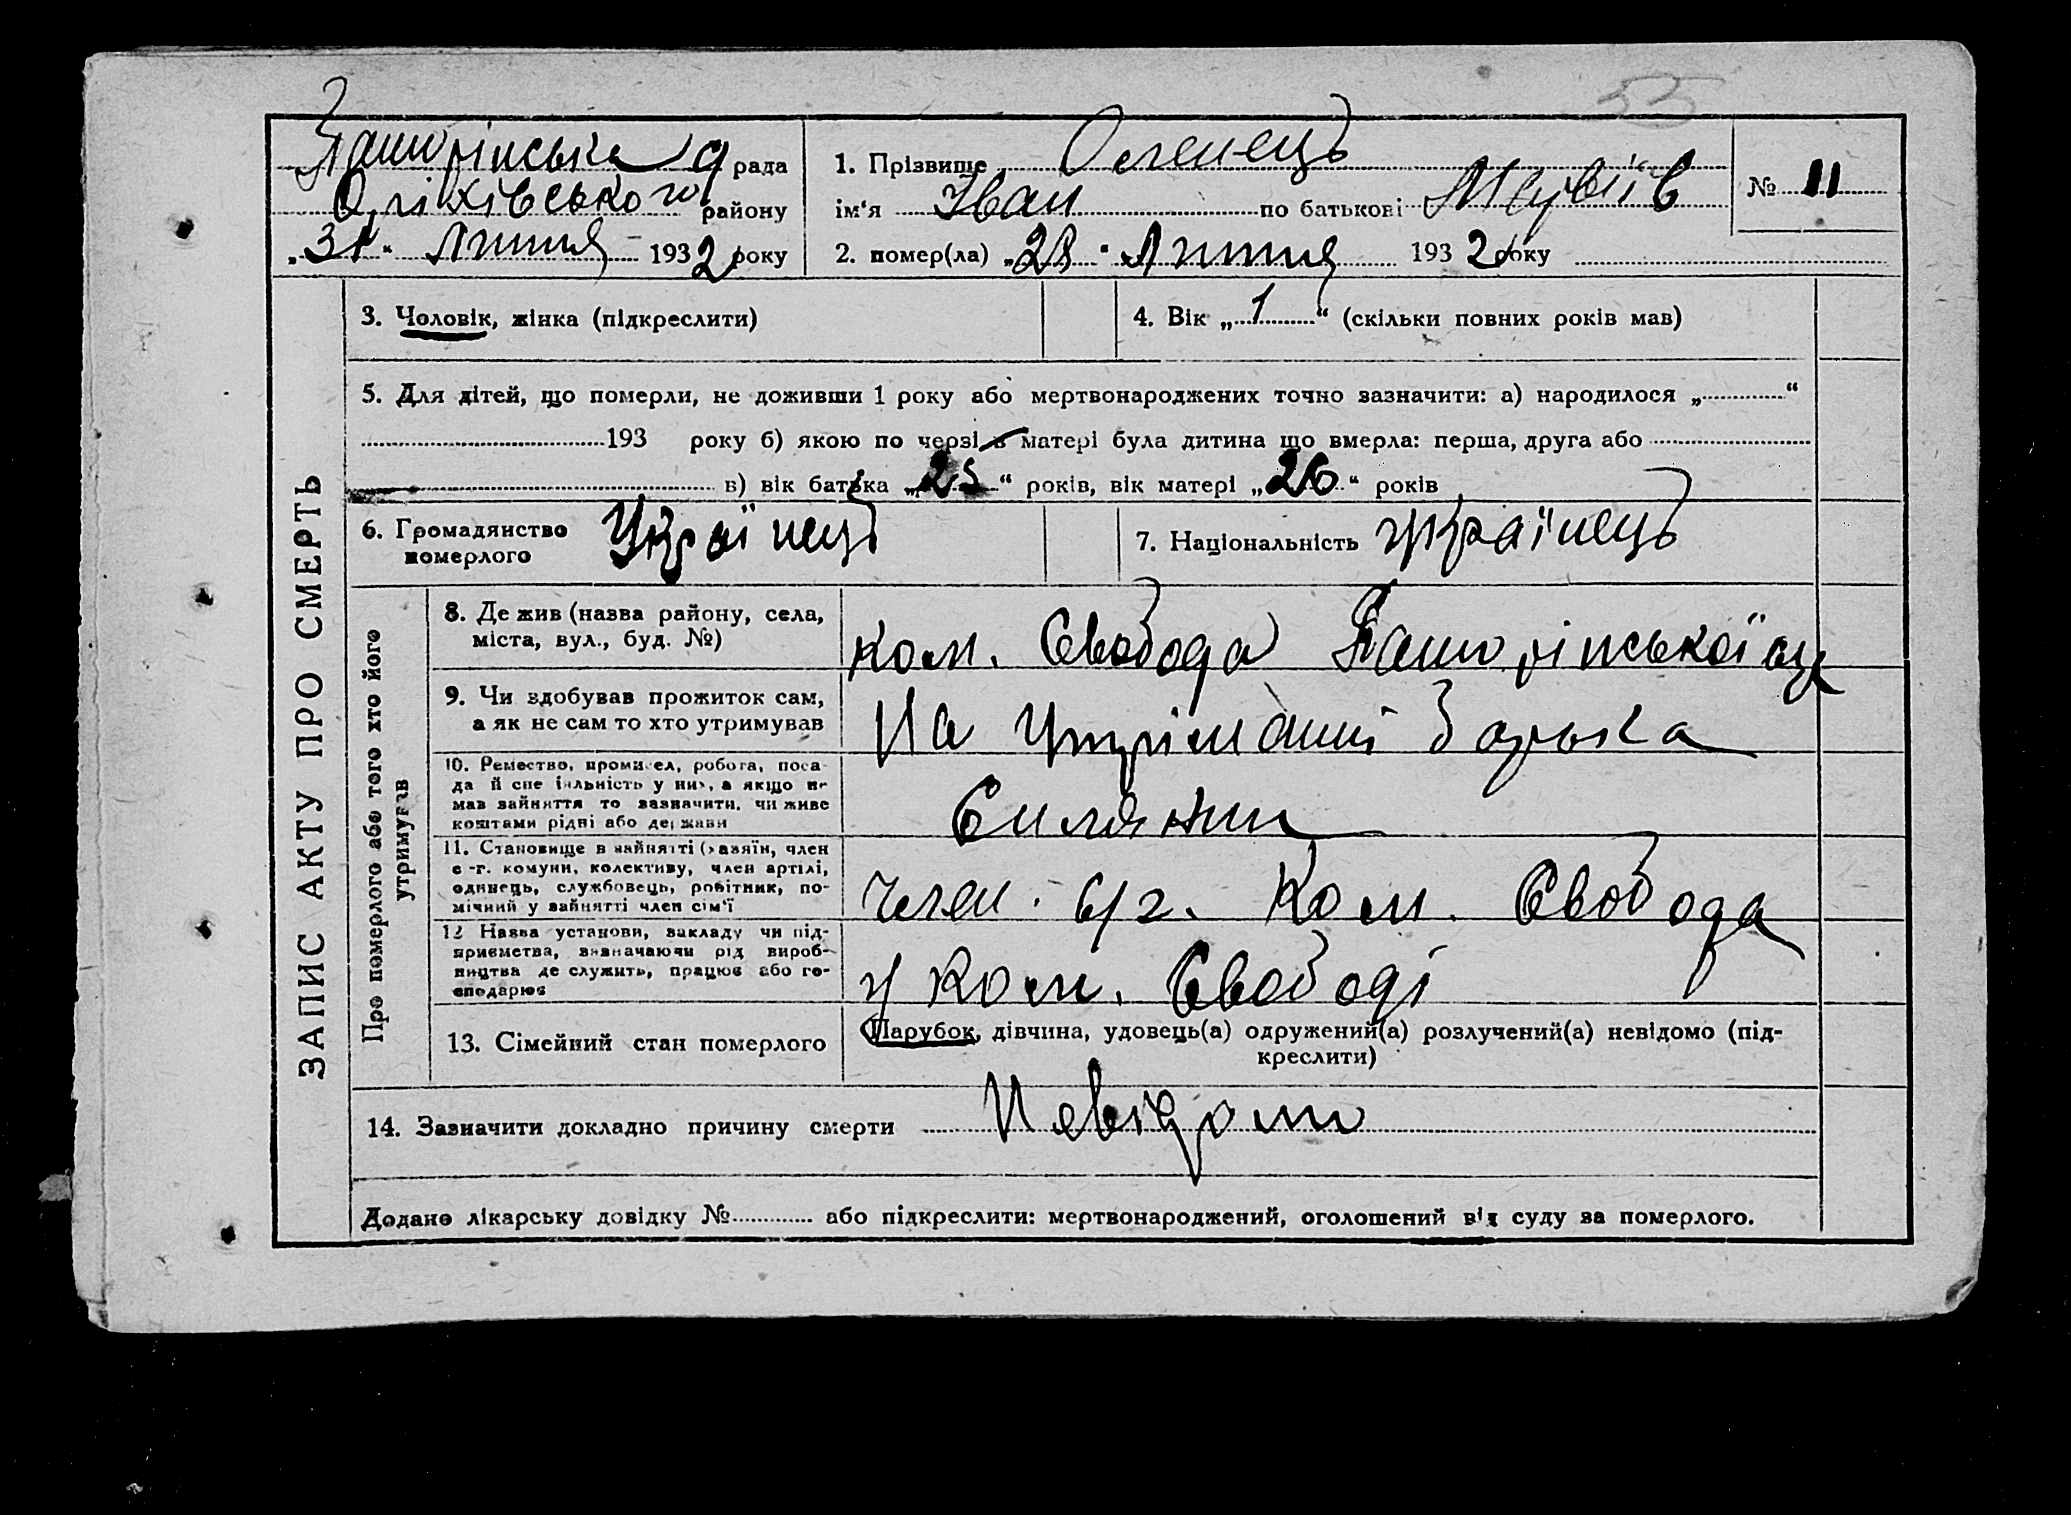 55
рада
1. Прізвище Оленець
№ 11
Оріхівського району
ім'я Іван по батькові
„31“ Липня 1932 року
2. помер(ла) „28“ Липня 1932 року
ЗАПИС АКТУ ПРО СМЕРТЬ
3. Чоловік, жінка (підкреслити)
4. Вік „1“ (скільки повних років мав)
5. Для дітей, що померли, не доживши 1 року або мертвонароджених точно зазначити: а) народилося „ “
193 року б) якою по черзі в матері була дитина що вмерла: перша, друга або
в) вік батька „25“ років, вік матері „26“ років
6. Громадянство померлого Українець
7. Національність українець
Про померлого або того хто його утримував
8. Де жив (назва району, села,
міста, вул., буд. №)
ком. Свобода
9. Чи здобував прожиток сам,
а як не сам то хто утримував
На утріманні батька
10. Ремество, промисел, робота, поса-
да й спеціяльність у них, а якщо не
мав зайняття то зазначити, чи живе
коштами рідні або держави
Силянин
11. Становище в зайнятті (хазяїн, член
с.-г. комуни, колективу, член артілі,
одинець, службовець, робітник, по-
мічний у зайнятті член сім'ї
член с/г. Ком. Свобода
12 Назва установи, закладу чи під-
приємства, визначаючи рід вироб-
ництва де служить, працює або го-
сподарює
у Ком. Свободі
13. Сімейний стан померлого
Парубок, дівчина, удовець(а) одружений(а) розлучений(а) невідомо (під-
креслити)
14. Зазначити докладно причину смерти Невідомо
Додано лікарську довідку № або підкреслити: мертвонароджений, оголошений від суду за померлого.